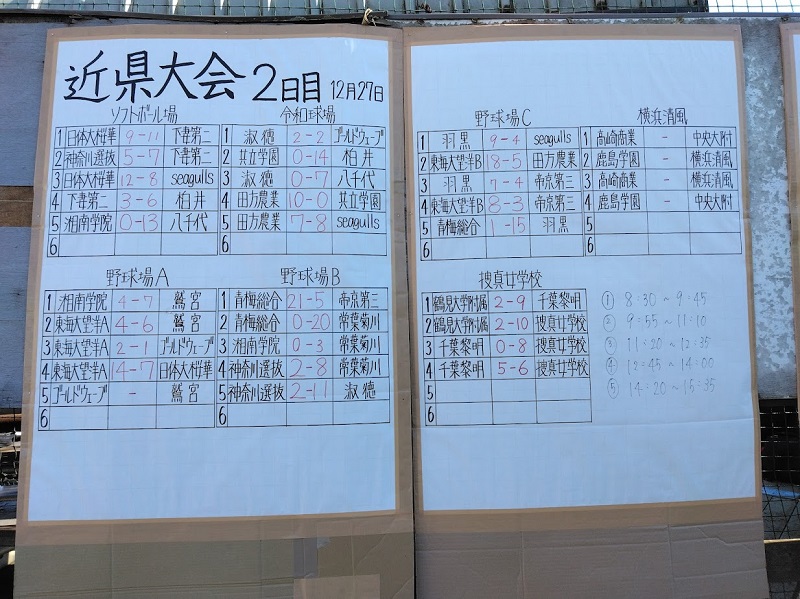 近県大会 2日目 12月27日
ソフトボール場
1 日体大桜華 9-11 下妻第二
2 神奈川選抜 5-7 下妻第二
3 日体大桜華 12-8 seagulls
4 下妻第二 3-6 柏井
5 湘南学院 0-13 八千代
6
令和球場
1 淑徳 2-2 ゴールドウェーブ
2 共立学園 0-14 柏井
3 淑徳 0-7 八千代
4 田方農業 10-0 共立学園
5 田方農業 7-8 seagulls
6
野球場A
1 湘南学院 4-7 鷲宮
2 東海大望洋A 4-6 鷲宮
3 東海大望洋A 2-1 ゴールドウェーブ
4 東海大望洋A 14-7 日体大桜華
5 ゴールドウェーブ - 鷲宮
6
野球場B
1 青梅総合 21-5 帝京第三
2 青梅総合 0-20 常葉菊川
3 湘南学院 0-3 常葉菊川
4 神奈川選抜 2-8 常葉菊川
5 神奈川選抜 2-11 淑徳
6
野球場C
1 羽黒 9-4 seagulls
2 東海大望洋B 18-5 田方農業
3 羽黒 7-4 帝京第三
4 東海大望洋B 8-3 帝京第三
5 青梅総合 1-15 羽黒
6
横浜清風
1 高崎商業 - 中央大附
2 鹿島学園 - 横浜清風
3 高崎商業 - 横浜清風
4 鹿島学園 - 中央大附
5
6
捜真女学校
1 鶴見大学附属 2-9 千葉黎明
2 鶴見大学附属 2-10 捜真女学校
3 千葉黎明 0-8 捜真女学校
4 千葉黎明 5-6 捜真女学校
5
6
① 8:30～9:45
② 9:55～11:10
③ 11:20～12:35
④ 12:45～14:00
⑤ 14:20～15:35